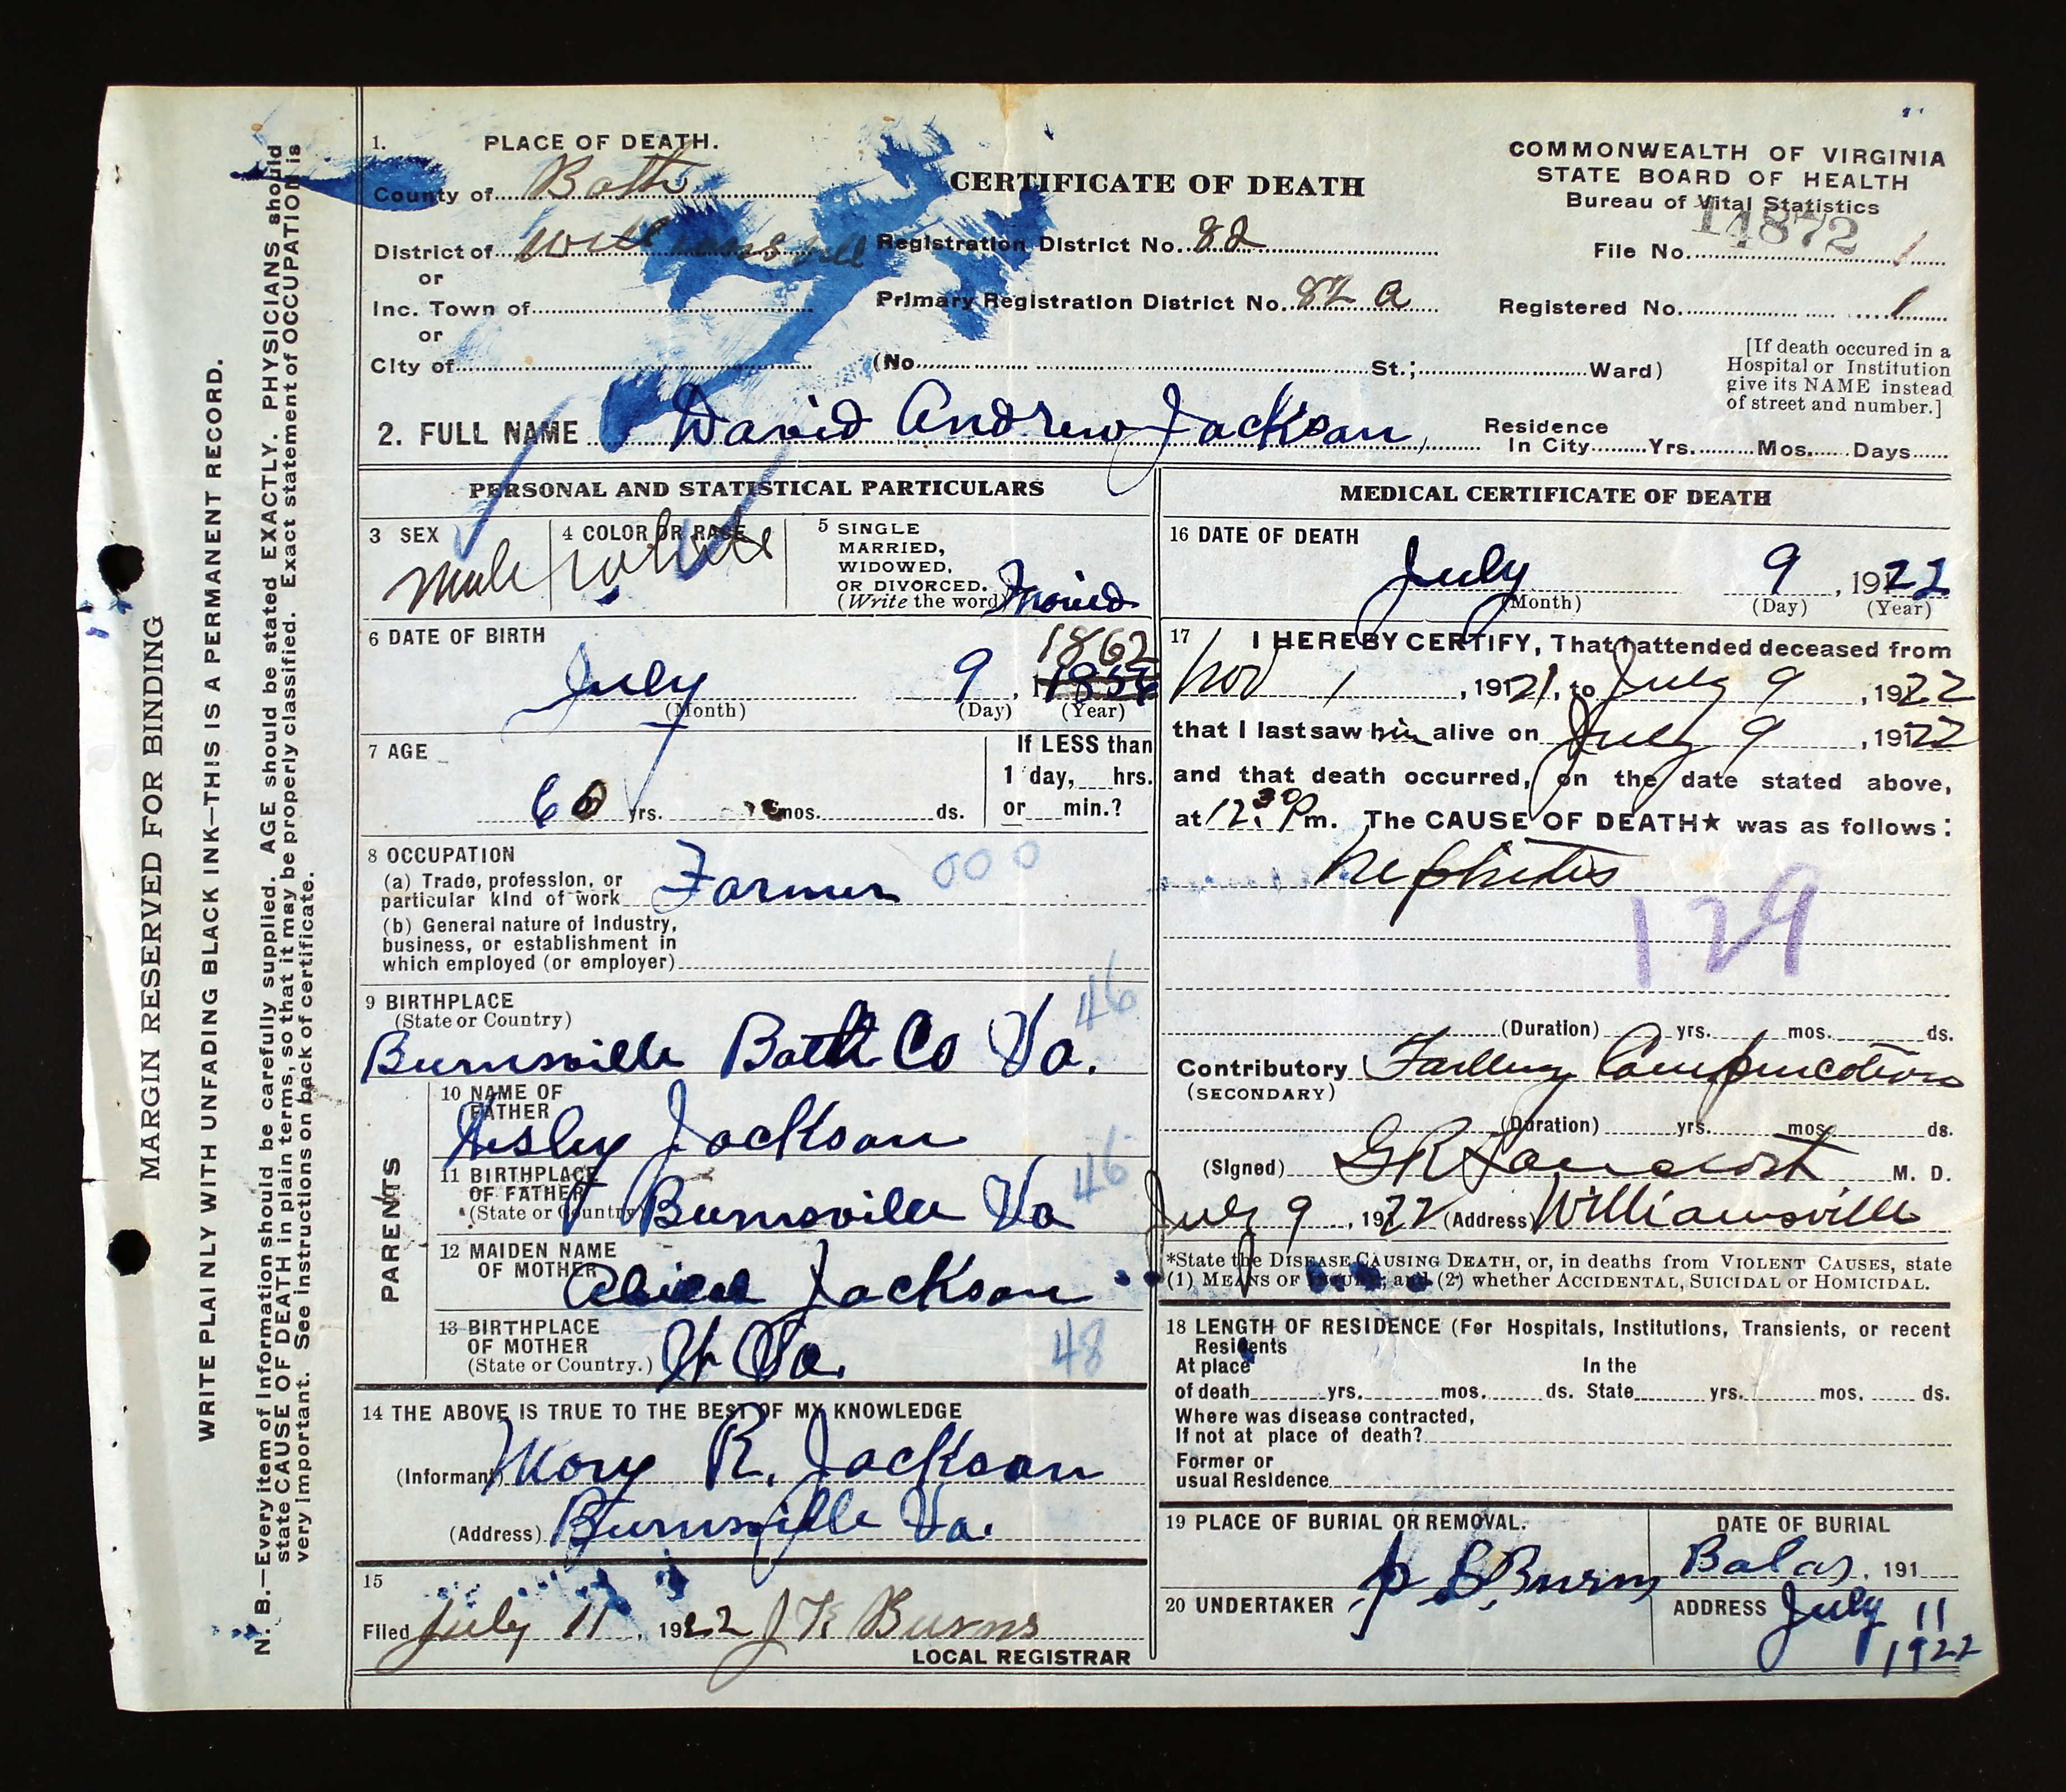 MARGIN RESERVED FOR BINDING
WRITE PLAINLY WITH UNFADING BLACK INK—THIS IS A PERMANENT RECORD.
N. B.—Every item of Information should be carefully supplied. AGE should be stated EXACTLY. PHYSICIANS should
state CAUSE OF DEATH in plain terms, so that it may be properly classified. Exact statement of OCCUPATION is
very important. See instructions on back of certificate.
1. PLACE OF DEATH.
County of Bath
District of Williamsville
or
Inc. Town of
or
City of
CERTIFICATE OF DEATH
Registration District No. 82
Primary Registration District No. 82 a
(No. St.; Ward)
COMMONWEALTH OF VIRGINIA
STATE BOARD OF HEALTH
Bureau of Vital Statistics
14872
File No. 1
Registered No. 1
[If death occured in a
Hospital or Institution
give its NAME instead
of street and number.]
2. FULL NAME David Andrew Jackson
Residence
In City Yrs. Mos. Days
PERSONAL AND STATISTICAL PARTICULARS
3 SEX
Male
4 COLOR OR RACE
White
5 SINGLE
MARRIED,
WIDOWED,
OR DIVORCED.
(Write the word)
6 DATE OF BIRTH
1862
July 9, 1856
(Month) (Day) (Year)
7 AGE
60 yrs. mos. ds.
If LESS than
1 day, hrs.
or min.?
8 OCCUPATION
(a) Trade, profession, or
particular kind of work Farmer
000
(b) General nature of Industry,
business, or establishment in
which employed (or employer)
9 BIRTHPLACE
(State or Country)
46
Burnsville Bath Co Va.
PARENTS
10 NAME OF
FATHER
Wesley Jackson
11 BIRTHPLACE
OF FATHER
(State or Country)
Burnsville Va
46
12 MAIDEN NAME
OF MOTHER
Jackson
13 BIRTHPLACE
OF MOTHER
(State or Country.) W Va.
48
14 THE ABOVE IS TRUE TO THE BEST OF MY KNOWLEDGE
(Informant) Mary R. Jackson
(Address) Burnsville Va.
15
Filed July 11, 1922 J F Burns
LOCAL REGISTRAR
MEDICAL CERTIFICATE OF DEATH
16 DATE OF DEATH
July 9, 1922
(Month) (Day) (Year)
17 I HEREBY CERTIFY, That I attended deceased from
Nov 1, 1921, to July 9, 1922
that I last saw him alive on July 9, 1922
and that death occurred, on the date stated above,
at 12.30 Pm. The CAUSE OF DEATH★ was as follows:
Nephritis
129
(Duration) yrs. mos. ds.
Contributory Failing Compensation
(SECONDARY)
(Duration) yrs. mos. ds.
(Signed) G R M. D.
July 9, 1922 (Address) Williamsville
*State the DISEASE CAUSING DEATH, or, in deaths from VIOLENT CAUSES, state
(1) MEANS OF INJURY; and (2) whether ACCIDENTAL, SUICIDAL or HOMICIDAL.
18 LENGTH OF RESIDENCE (For Hospitals, Institutions, Transients, or recent
Residents
At place In the
of death yrs. mos. ds. State yrs. mos. ds.
Where was disease contracted,
If not at place of death?
Former or
usual Residence
19 PLACE OF BURIAL OR REMOVAL.
DATE OF BURIAL
, 191
20 UNDERTAKER
Burns
ADDRESS July 11
1922